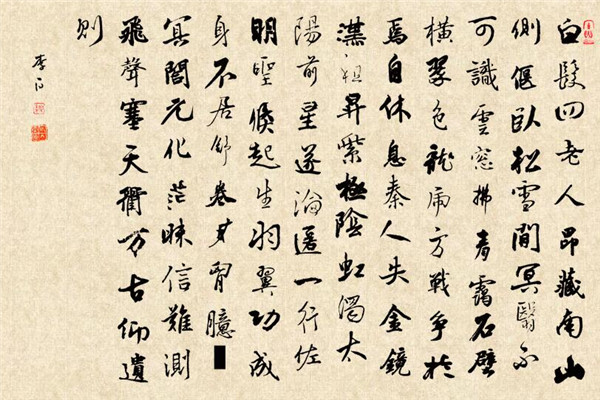 白髮四老人昂藏南山
側偃臥松雪間冥翳不
可識雲窓拂青靄石壁
橫翠色龍虎方戰爭於
焉自休息秦人失金鏡
漢祖昇紫極陰虹濁太
陽前星遂淪匿一行佐
明聖倏起生羽翼功成
身不居舒卷在胷臆
冥閤元化茫昧信難測
飛聲塞天衢万古仰遺
則
李白